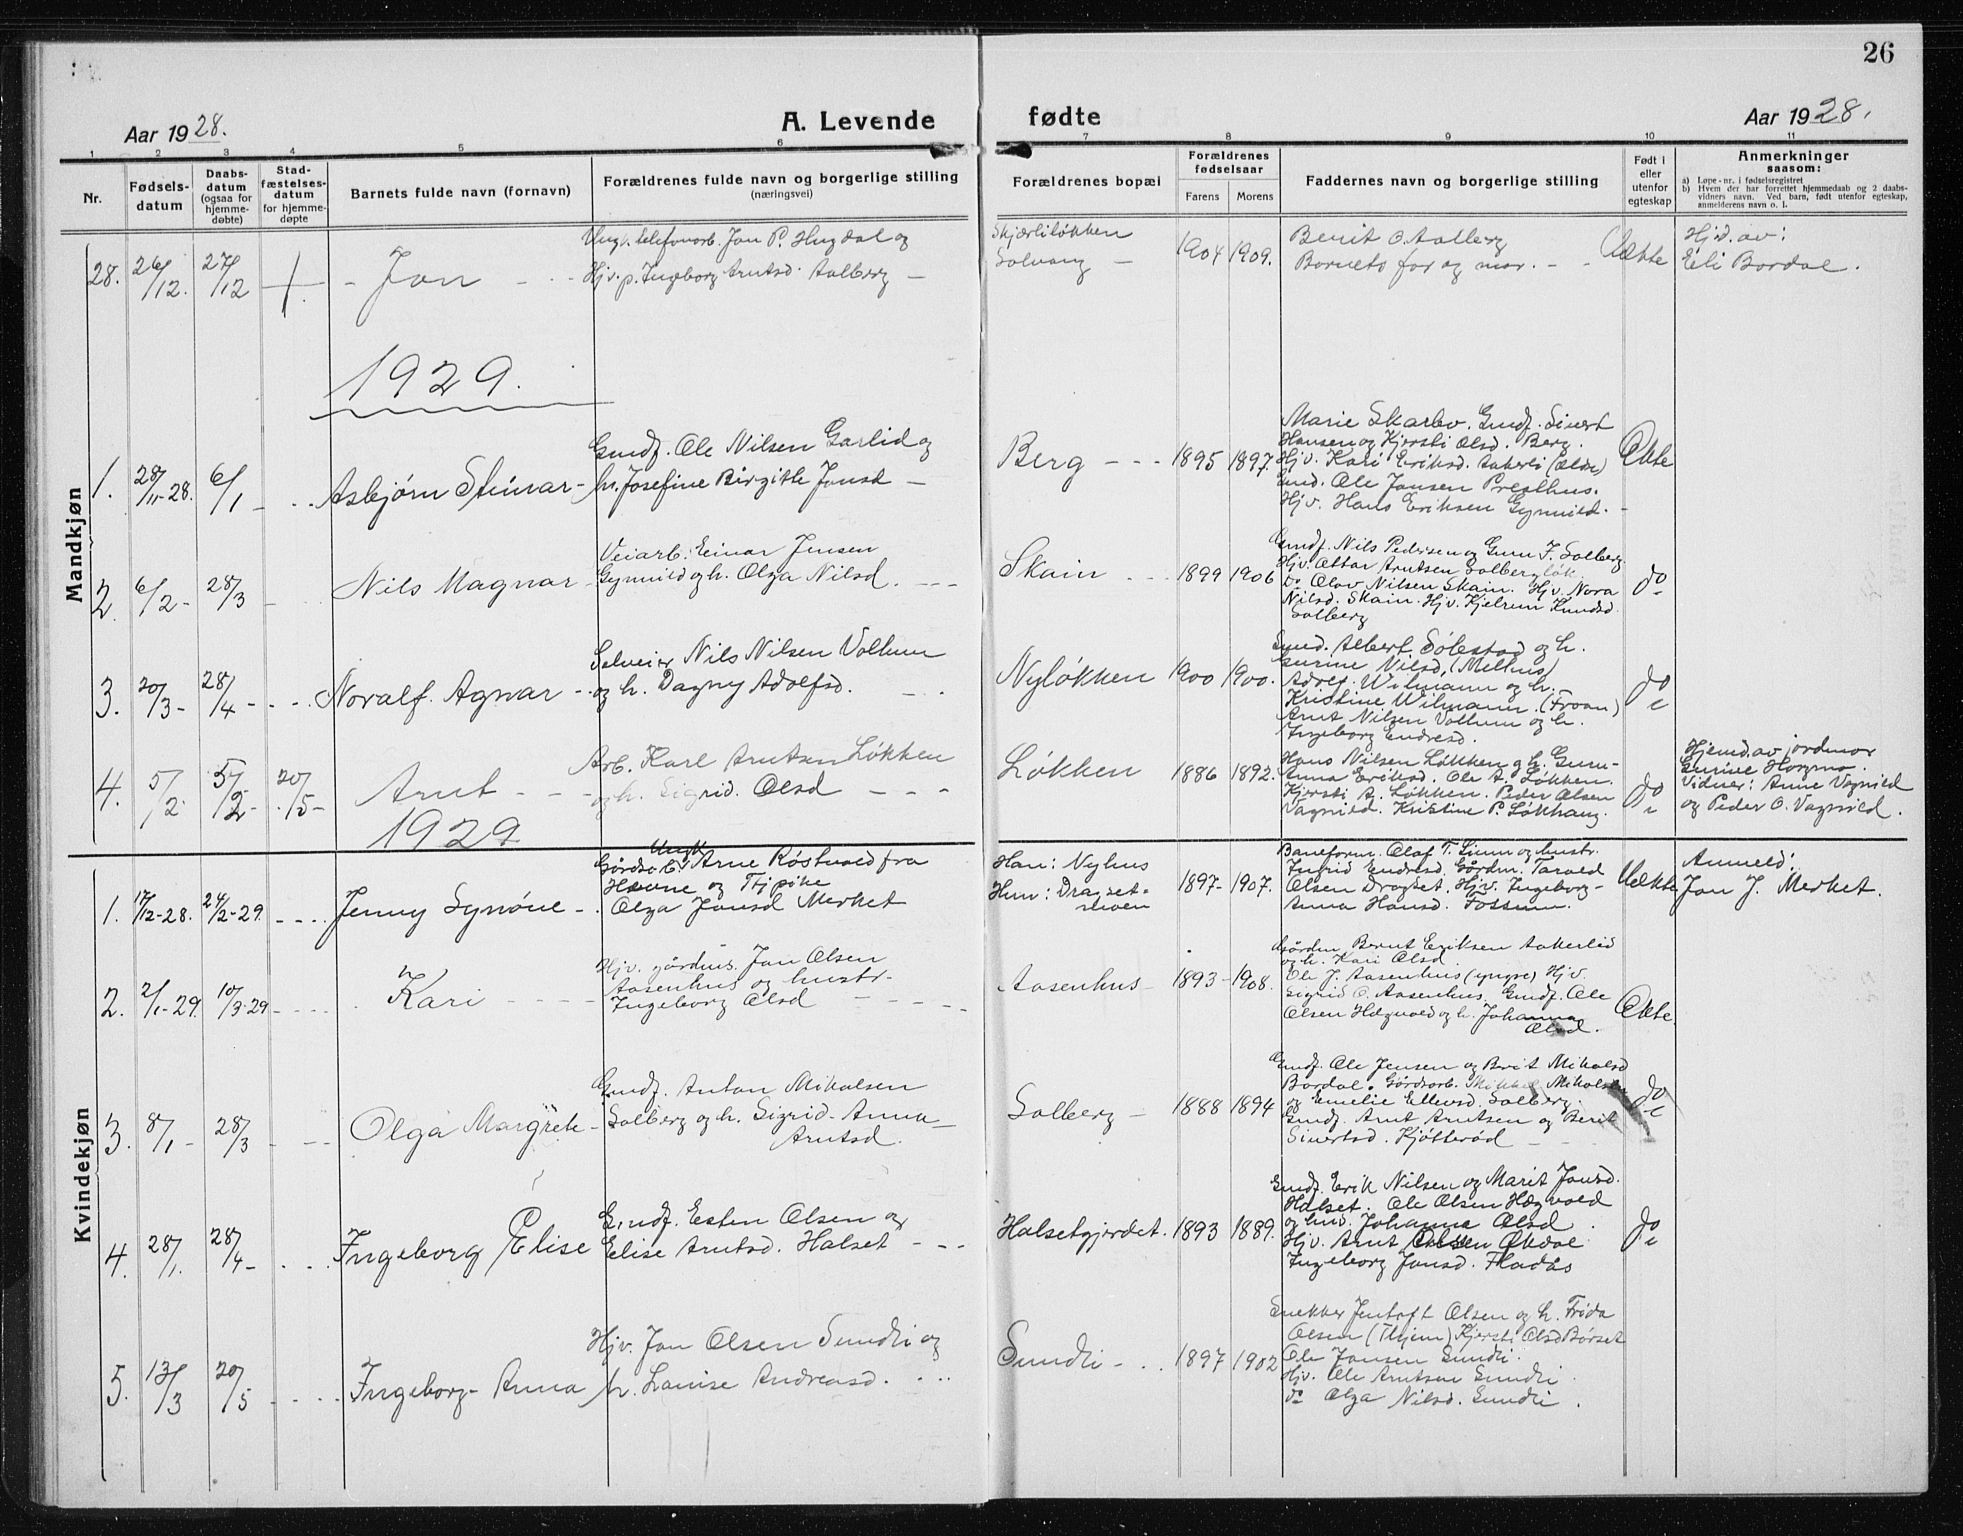 26
Aar 1928.
A. Levende
fødte
Aar 1928.
1 2 3 4 5 6 7 8 9 10 11
Nr.
Fødsels-
datum
Daabs-
datum
(ogsaa for
hjemme-
døbte)
Stad-
fæstelses-
datum
for hjemme-
døpte
Barnets fulde navn (fornavn)
Forældrenes fulde navn og borgerlige stilling
(næringsvei)
Forældrenes bopæl
Forældrenes
fødselsaar
Farens Morens
Faddernes navn og borgerlige stilling
Født i
eller
utenfor
egteskap
Anmerkninger
saasom:
a) Løpe-nr. i fødselsregistret
b) Hvem der har forrettet hjemmedaab og 2 daabs-
vidners navn. Ved barn, født utenfor egteskap,
anmelderens navn o. l.
Mandkjøn
28. 26/12. 27/12 Jon
Ungk. telefonarb. Jon P. Hugdal og
Hjv. p. Ingeborg Arntsd. Aalberg
Skjærliløkken
Solvang
1904 1909.
Berit O. Aalberg
Barnets far og mor.
Uækte
Hjd. av:
Eli Bordal.
1929.
1. 28/11-28. 6/1 Asbjørn Steinar
Gmdf. Ole Nilsen Garlid og
h. Josefine Birgitte Jonsd
Berg 1895 1897.
Marie Skarbo. Gmdf. Sivert
Hansen og Kjersti Olsd. Berg.
Hjv. Kari Eriksd. Aakerli (Elde)
Gmd. Ole Jonsen Presthus.
Hjv. Hans Eriksen Gynnild.
Ekte
2. 6/2 28/3 Nils Magnar
Veiarb. Einar Jensen
Gynnild og h. Olga Nilsd.
Skain 1899 1906
Gmdf. Nils Pedersen og Guru J. Solberg
Hjv. Ottar Arntsen Solbergløk
do Olav Nilsen Skain. Hjv. Nora
Nilsd. Skain. Hjv. Kjelrun Knudsd
Solberg
do
3. 20/3 28/4 Noralf Agnar
Selveier Nils Nilsen Vollum
og h. Dagny Adolfsd.
Nyløkken 1900 1900.
Gmd. Albert Solestad og h.
Gurine Nilsd, (Melhus)
Adolf Wilmann og h.
Kristine Wilmann. (Froan)
Arnt Nilsen Vollum og h.
Ingeborg Endresd.
do
4. 5/2 5/2 20/5 Arnt
Arb. Karl Arntsen Løkken
og h. Sigrid Olsd
Løkken 1886 1892.
Hans Nilsen Løkken og h. Guru
Anna Eriksd. Ole A. Løkken.
Kjersti A. Løkken. Peder Olsen
Vagnild. Kristine P. Løkhaug.
do
Hjemd. av jordmor
Gurine Hagmo.
Vidner: Anne Vagnild
og Peder O. Vagnild.
1929
Kvindekjøn
1. 17/12-28. 24/2-29. Jenny Synøve
Ungk
Gårdsarb. Arne Røstvold fra
Havne og Tjpike
Olga Jonsd Merket
Han: Nyhus
Hun: Dragset-
moen
1897 1907.
Baneform. Olaf T. Lium og hustr.
Ingrid Endresd. Gårdm. Tarald
Olsen Dragset. Hjv. Ingeborg-
Anna Hansd. Fossum.
Uekte
Anmeld:
Jon J. Merket.
2. 2/1-29. 10/3-29 Kari
Hjv. gårdms. Jon Olsen
Aasenhus og hustr.
Ingeborg Olsd
Aasenhus 1893 1908.
Gårdm Bernt Eriksen Aakerlid
og h. Kari Olsd.
Ole J. Aasenhus (yngre) Hjv.
Sigrid O. Aasenhus. Gmdf. Ole
Olsen Hægvold og h. Johanna
Olsd.
Ekte.
3. 8/1 28/3 Olga Margrete
Gmdf. Anton Mikalsen
Solberg og h. Sigrid Anna
Arntsd.
Solberg 1888 1894
Gmdf. Ole Jensen og Brit Mikalsd
Bordal. Gårdsarb. Mikkel Mikalsen
og Emelie Ellevsd. Solberg.
Gmdf. Arnt Arntsen og Berit
Sivertsd. Kjøtterød
do
4. 28/1. 28/4 Ingeborg Elise
Gmdf. Esten Olsen og
Elise Arntsd. Halset
Halsetgjerdet. 1893 1889.
Gmdf. Erik Nilsen og Marit Jonsd.
Halset. Ole Olsen Hægvold
og hud. Johanna Olsd
Hjv. Arnt Olsen Ekdal
Ingeborg Jonsd. Fladås
do
5. 13/3 20/5 Ingeborg Anna
Hjv. Jon Olsen Sundli og
h. Louise Andreasd.
Sundli 1897 1902
Snekker Jentoft Olsen og h. Frida
Olsen (Thjem) Kjersti Olsd Børset
Ole Jonsen Sundli.
Hjv. Ole Arntsen Sundli
do Olga Nilsd. Sundli.